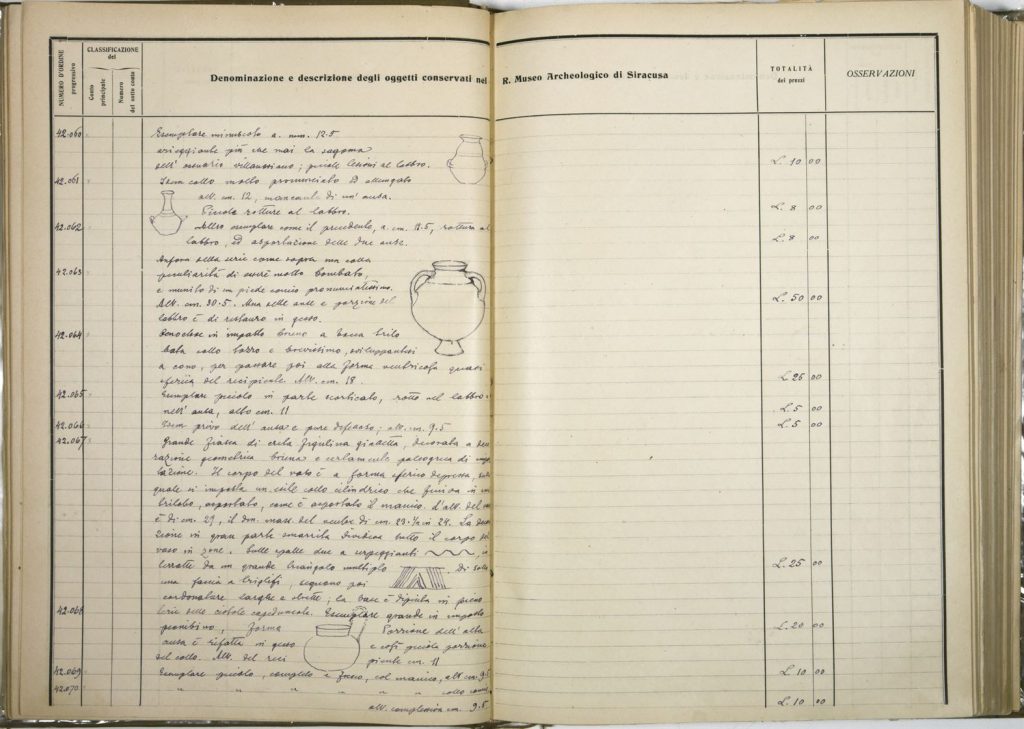 NUMERO D'ORDINE progressivo
CLASSIFICAZIONE del
Conto principale
Numero del sotto conto
Denominazione e descrizione degli oggetti conservati nel R. Museo Archeologico di Siracusa
TOTALITÀ dei prezzi
OSSERVAZIONI
42.060 Esemplare minuscolo a. mm. 12.5
arieggiante più che mai la sagoma
dell' ossuario villanoviano; piccole lesioni al labbro. L. 10 00
42.061 Idem collo molto pronunciato ed allungato
alt. cm. 12, mancante di un' ansa.
Piccole rotture al labbro. L. 8 00
42.062 Altro esemplare come il precedente, a. cm. rottura al
labbro, ed asportazione delle due anse. L. 8 00
Anfora della serie come sopra ma colla
42.063 peculiarità di essere molto bombata,
e munita di un piede conico pronunciatissimo.
Alt. cm. 30.5. Una delle anse e porzione del L. 50 00
labbro è di restauro in gesso.
42.064 Oenochoe in impasto bruno a bocca trilo
bata collo tozzo e brevissimo, sviluppantesi
a cono, per passare poi alla forma ventricola quasi
sferica del recipiente. Alt. cm. 18. L. 25 00
42.065 Esemplare piccolo in parte scorticato, rotto nel labbro e
nell' ansa, alto cm. 11 L. 5 00
42.066 Idem privo dell' ansa e pure difettato; alt. cm. 9.5 L. 5 00
42.067 Grande fiasca di creta figulina gialletta, decorata a
razione geometrica bruna e certamente paleogreca di
tazione. Il corpo del vaso è a forma sferico depressa,
quale si imposta un esile collo cilindrico che finiva in un
trilobo, asportato, come è asportato il manico. L'alt. del
è di cm. 29, il dm. mass. del ventre di cm. 23 ½ in 24. La
zione in gran parte smarrita divideva tutto il corpo del
vaso in zone. Sulle spalle due a serpeggianti
terrotte da un grande triangolo multiplo . Di L. 25 00
una fascia a triglifi, seguono poi
cordonature larghe e strette; la base è dipinta in pieno
42.068 Serie delle ciotole capeduncole. Esemplare grande in impasto
primitivo, forma Porzione dell' alta L. 20 00
ansa è rifatta in gesso e così piccola porzione
del collo. Alt. del reci piente cm. 11
42.069 Esemplare piccolo, completo e fino, col manico, alt. cm. 9.5 L. 10 00
42.070 " " " " " " collo come
alt. complessiva cm. 9.5 L. 10 00